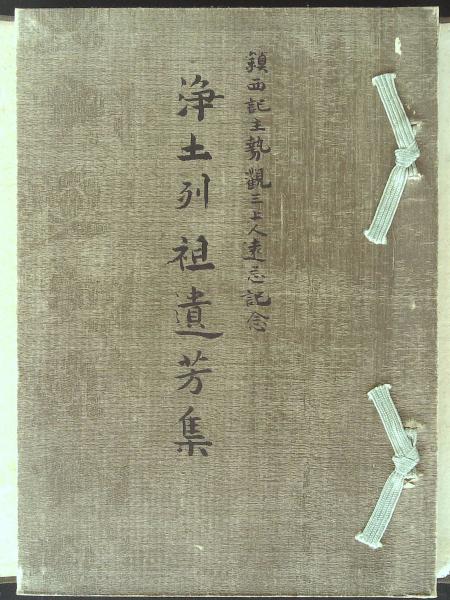 鎮西記主勢観三上人遠忌記念
浄土列祖遺芳集